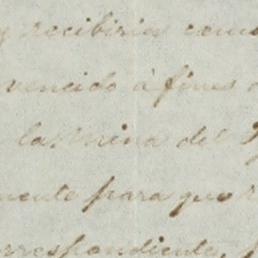 y recibirá como
vencido á fines
la Mina del
mente para que
rrespondiente,